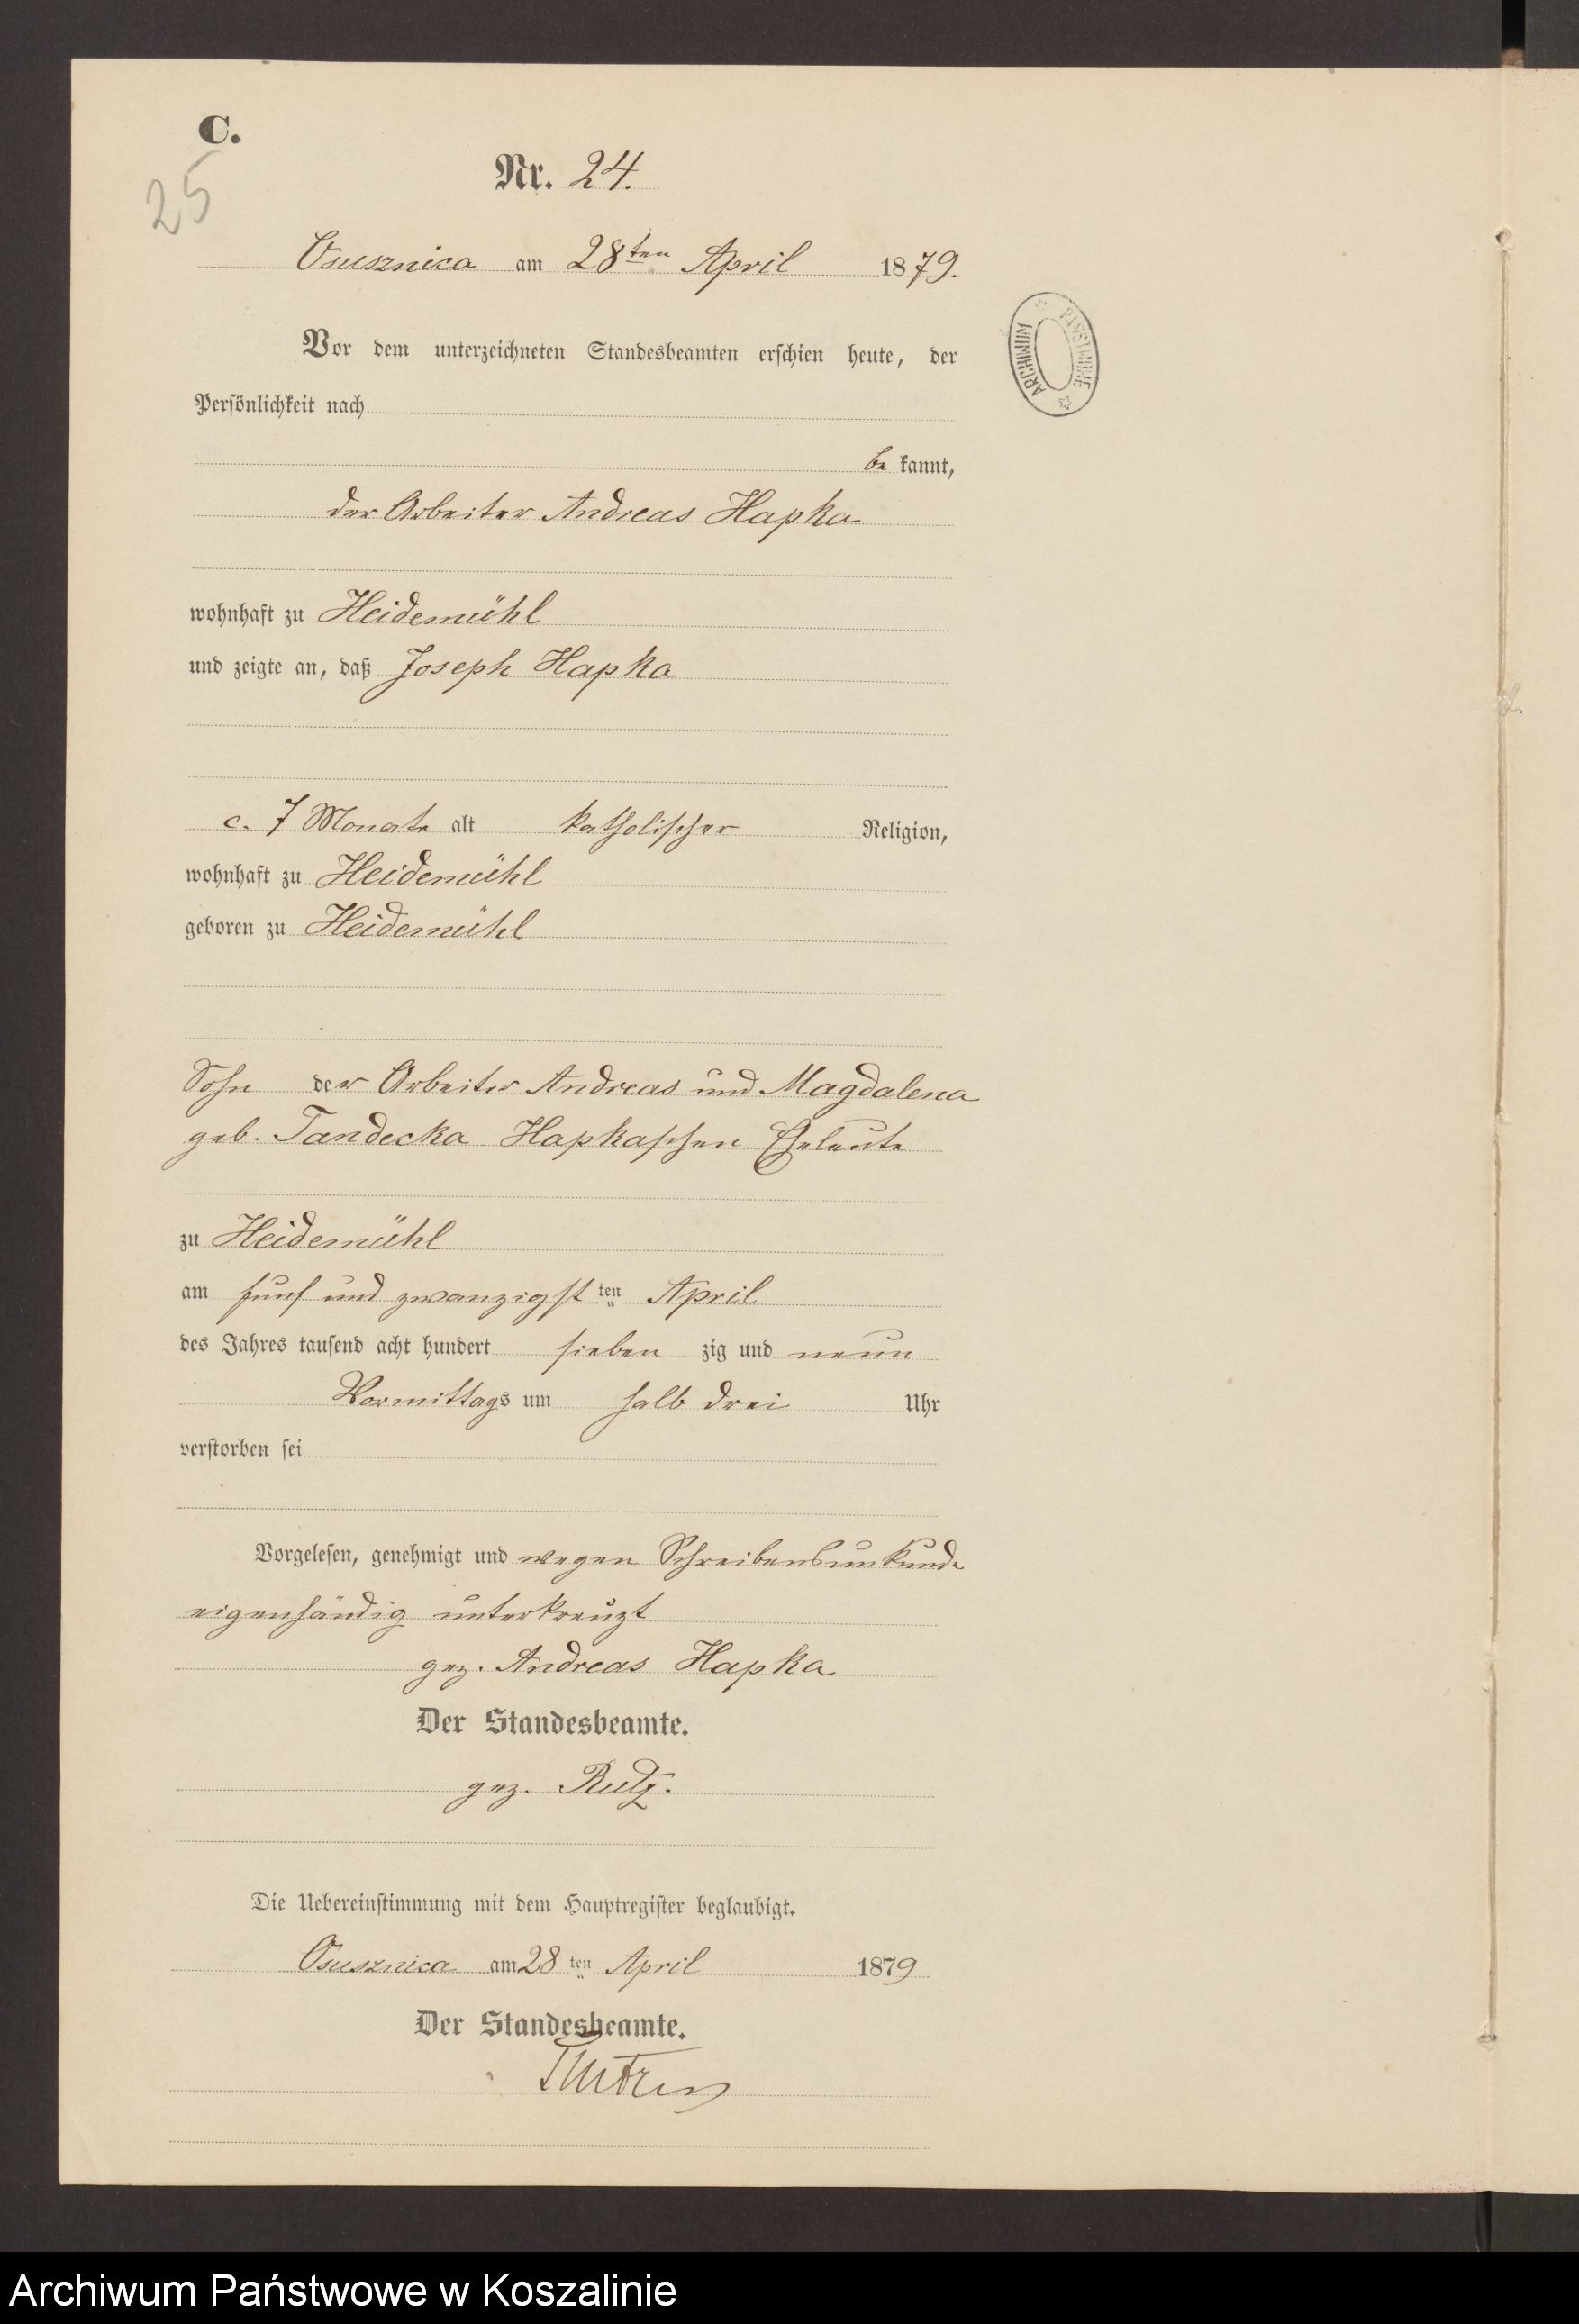 C.
25
Nr. 24.
Osusznica am 28ten April 1879.
Vor dem unterzeichneten Standesbeamten erschien heute, der
Persönlichkeit nach
be kannt,
der Arbeiter Andreas Hapka
wohnhaft zu Heidemühl
und zeigte an, daß Joseph Hapka
c. 7 Monate alt katholischer Religion,
wohnhaft zu Heidemühl
geboren zu Heidemühl
Sohn der Arbeiter Andreas und Magdalena
geb. Tandecka Hapkaschen Eheleute
zu Heidemühl
am fünf und zwanzigst ten April
des Jahres tausend acht hundert sieben zig und neun
Vormittags um halb drei Uhr
verstorben sei
Vorgelesen, genehmigt und wegen Schreibensunkunde
eigenhändig unterkreuzt
gez. Andreas Hapka
Der Standesbeamte.
gez. Rutz.
Die Uebereinstimmung mit dem Hauptregister beglaubigt.
Osusznica am 28 ten April 1879
Der Standesbeamte.
ARCHIWUM PAŃSTWOWE
Archiwum Państwowe w Koszalinie